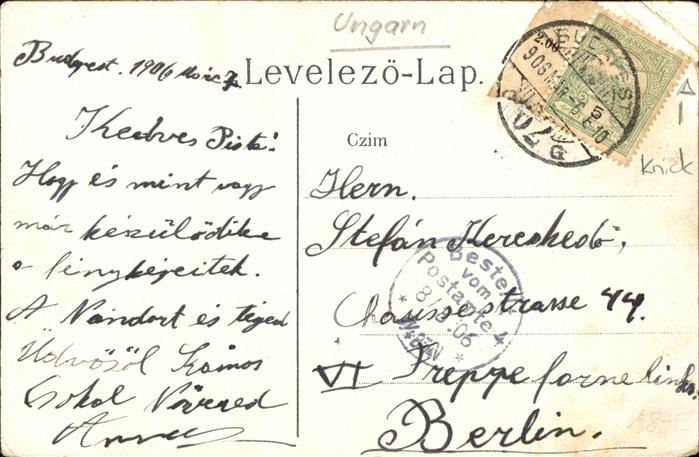 Ungarn
Budapest. 1906
Levelező-Lap.
Kedves Pista!
Hogy és mint vagy
már készülődik
a fényképeitek.
A Nándort és téged
Üdvözöl Számos
Csokol Nővéred
Czim
Hern.
Stefán Kereskedő,
Chausse strasse 44.
VI Treppe forne links.
Berlin.
BUDAPEST
5
Bestellt
vom
Postamte 4
8/3.06
Knick